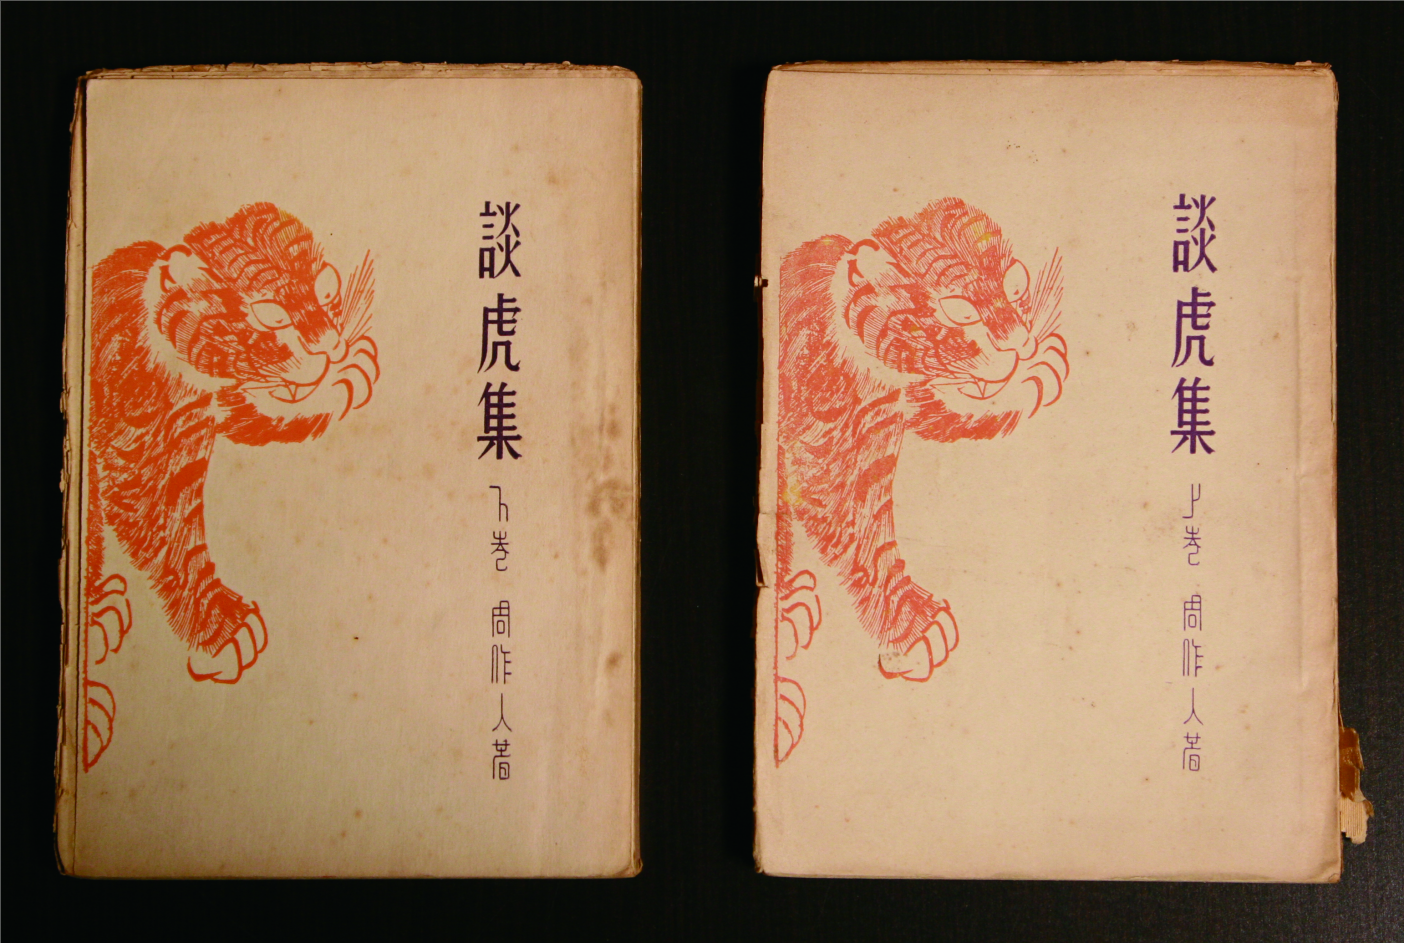 談虎集 下卷 周作人著
談虎集 上卷 周作人著